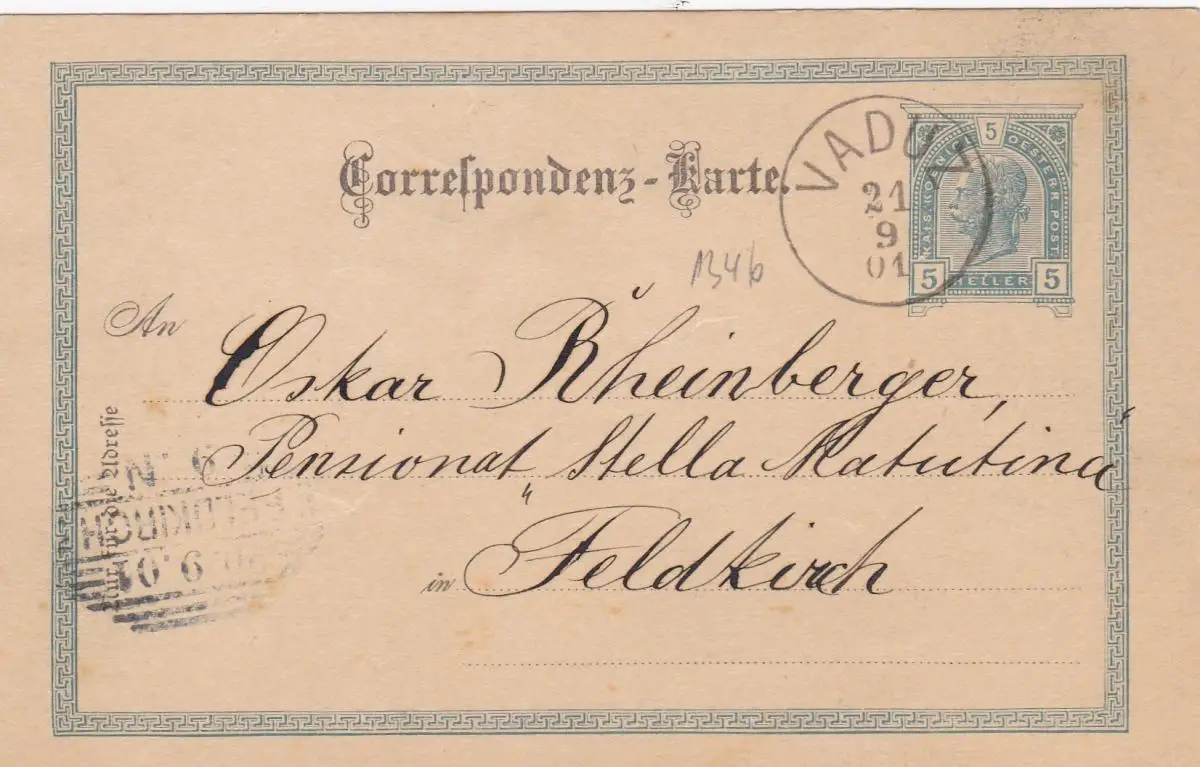 Correspondenz-Karte.
VADUZ
21
9
01
5
KAIS. KÖN.
OESTERR. POST.
5 HELLER 5
134b
An
Oskar Rheinberger,
Pensionat „Stella Matutina“
in Feldkirch
Nur für die Adresse
FELDKIRCH
9.01